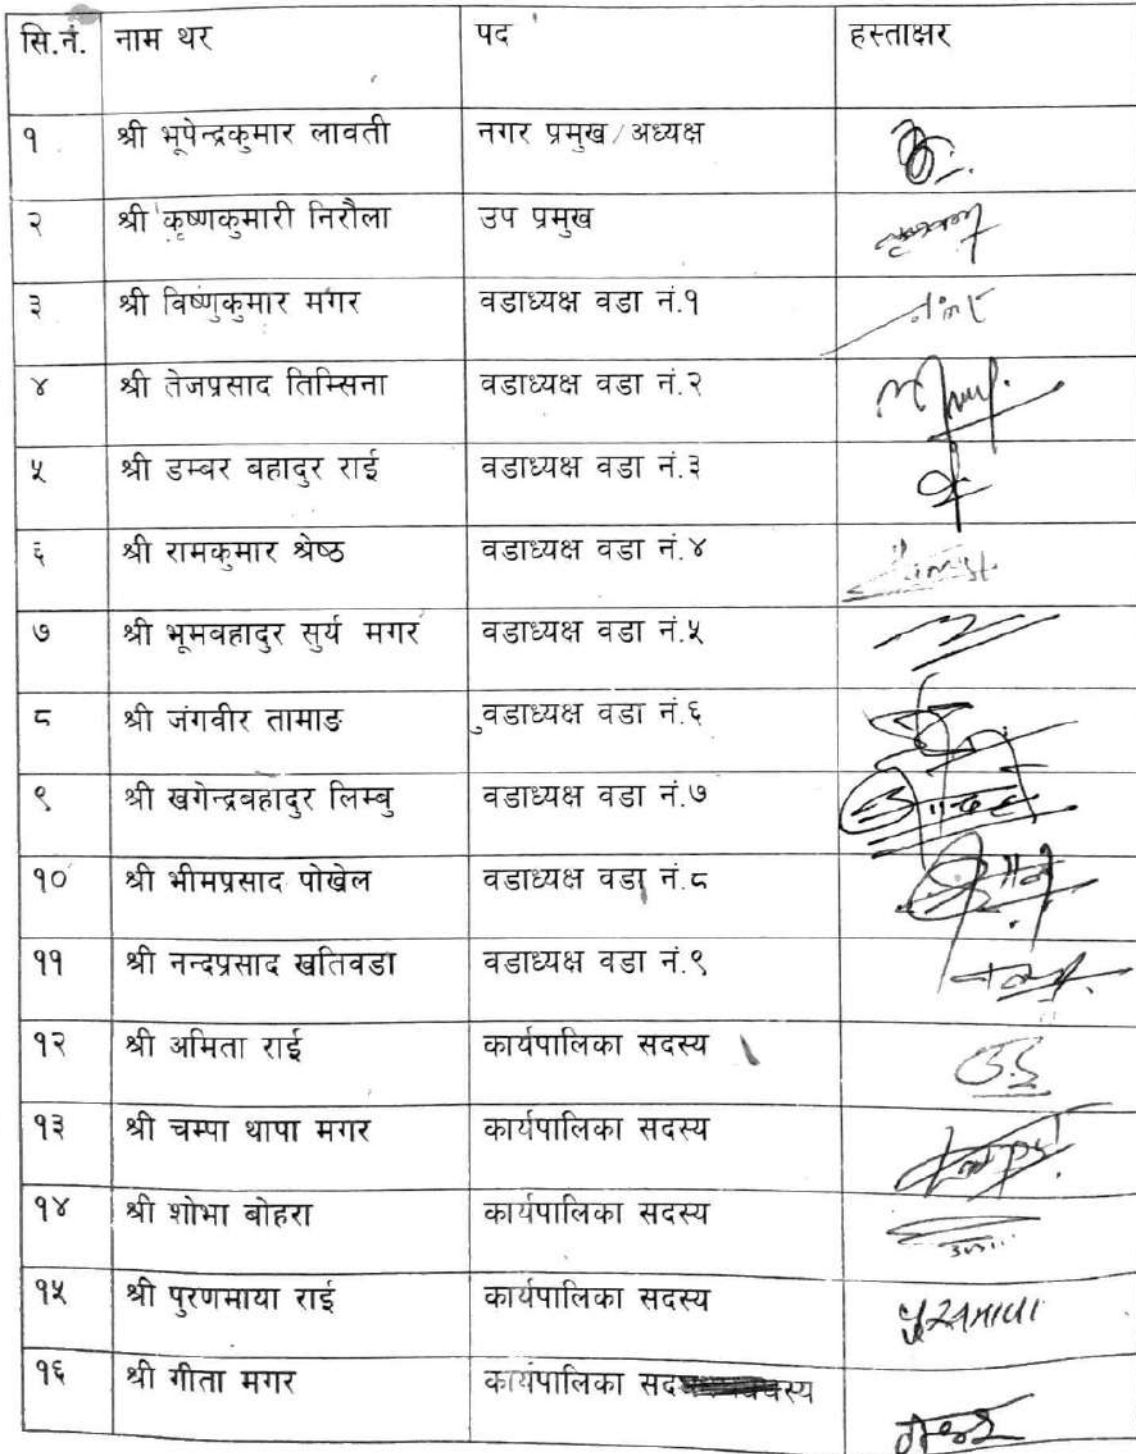 सि.नं. नाम थर पद हस्ताक्षर
१ श्री भूपेन्द्रकुमार लावती नगर प्रमुख/अध्यक्ष
२ श्री कृष्णकुमारी निरौला उप प्रमुख
३ श्री विष्णुकुमार मगर वडाध्यक्ष वडा नं.१
४ श्री तेजप्रसाद तिम्सिना वडाध्यक्ष वडा नं.२
५ श्री डम्वर वहादुर राई वडाध्यक्ष वडा नं.३
६ श्री रामकुमार श्रेष्ठ वडाध्यक्ष वडा नं.४
७ श्री भूमवहादुर सुर्य मगर वडाध्यक्ष वडा नं.५
८ श्री जंगवीर तामाङ वडाध्यक्ष वडा नं.६
९ श्री खगेन्द्रवहादुर लिम्वु वडाध्यक्ष वडा नं.७
१० श्री भीमप्रसाद पोखेल वडाध्यक्ष वडा नं.८
११ श्री नन्दप्रसाद खतिवडा वडाध्यक्ष वडा नं.९
१२ श्री अमिता राई कार्यपालिका सदस्य
१३ श्री चम्पा थापा मगर कार्यपालिका सदस्य
१४ श्री शोभा बोहरा कार्यपालिका सदस्य
१५ श्री पुरणमाया राई कार्यपालिका सदस्य
१६ श्री गीता मगर कार्यपालिका सदस्य